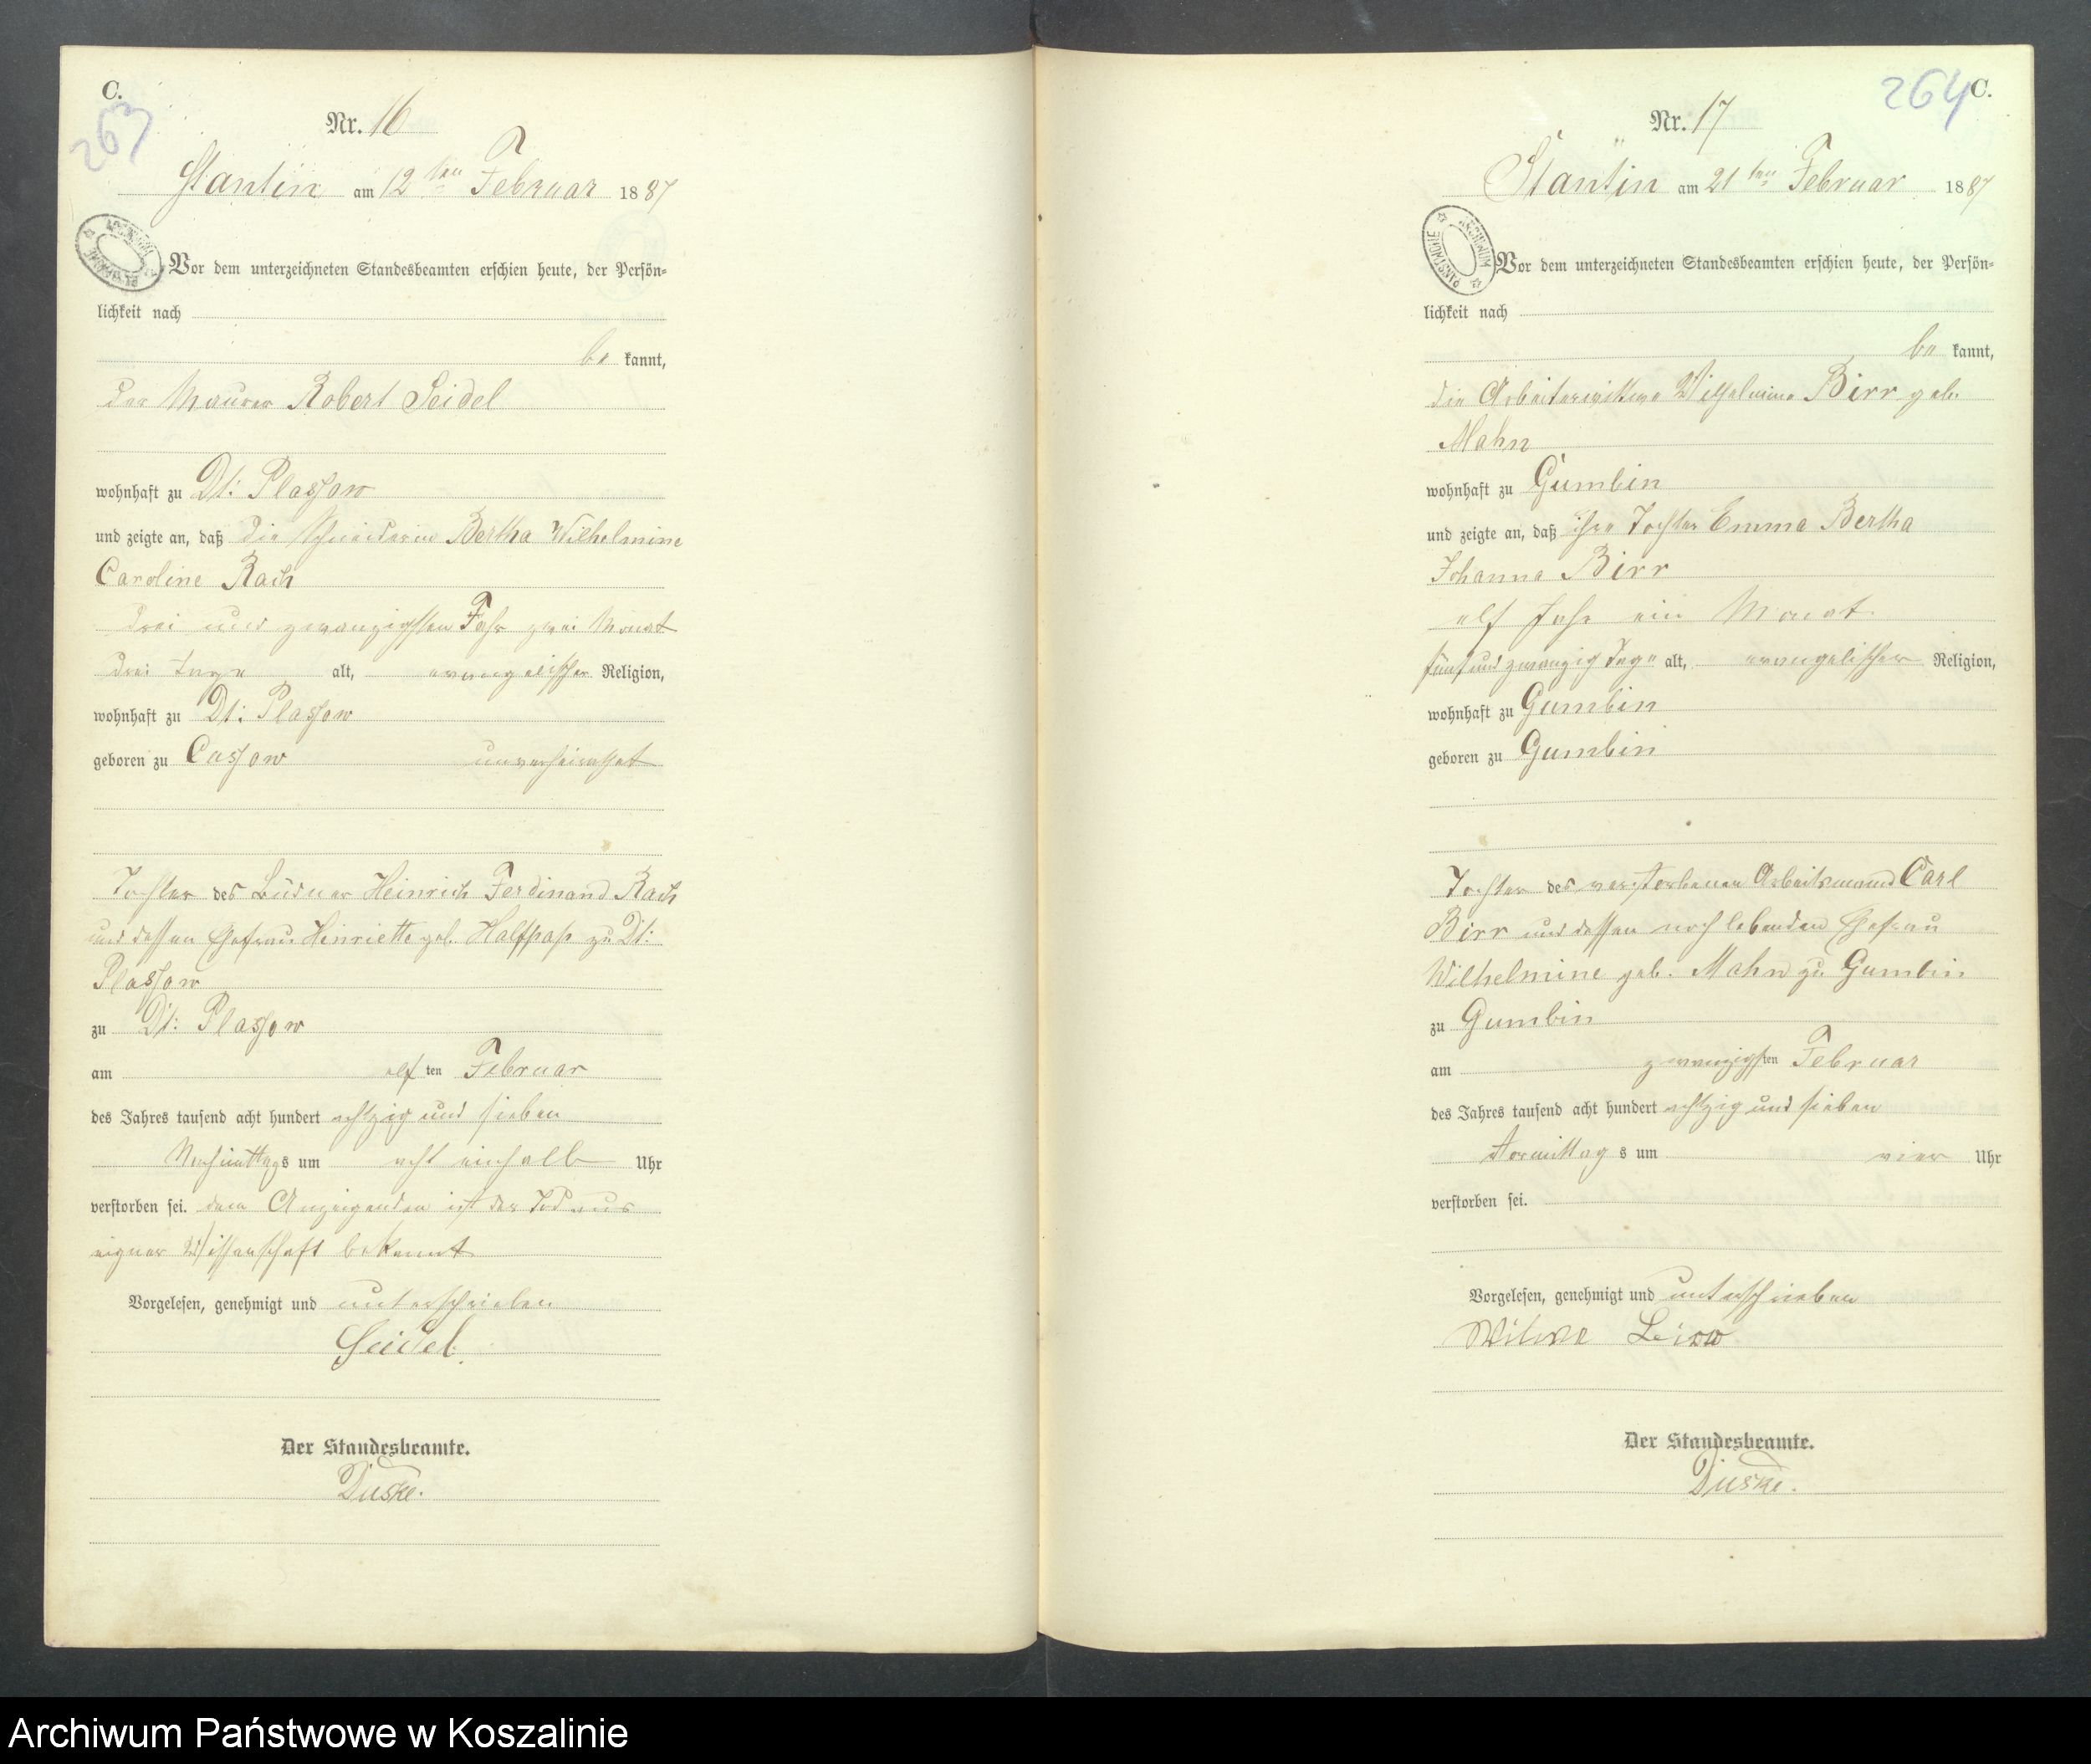 C.
263
Nr. 16
Stantin am 12ten Februar 1887
Vor dem unterzeichneten Standesbeamten erschien heute, der Persön-
lichkeit nach
be kannt,
der Maurer Robert Seidel
wohnhaft zu Dt: Plassow
und zeigte an, daß die Schneiderin Bertha Wilhelmine
Caroline Rach
drei und zwanzigsten Jahr zwei Monat
drei Tage alt, evangelischer Religion,
wohnhaft zu Dt: Plassow
geboren zu Cussow unverheirathet
Tochter des Büdner Heinrich Ferdinand Rach
und dessen Ehefrau Henriette geb. Halfpap zu Dt:
Plassow
zu Dt: Plassow
am elf ten Februar
des Jahres tausend acht hundert achtzig und sieben
Nachmittags um acht einhalb Uhr
verstorben sei. dem Anzeigenden ist der Tod aus
eigner Wissenschaft bekannt
Vorgelesen, genehmigt und unterschrieben
Seidel.
Der Standesbeamte.
Duske.
264
C.
Nr. 17
Stantin am 21ten Februar 1887
ARCHIWUM PAŃSTWOWE
Vor dem unterzeichneten Standesbeamten erschien heute, der Persön-
lichkeit nach
be kannt,
die Arbeiterwittwe Wilhelmine Birr geb.
Mahn
wohnhaft zu Gumbin
und zeigte an, daß ihre Tochter Emma Bertha
Johanna Birr
elf Jahr ein Monat
fünf und zwanzig Tage alt, evangelischer Religion,
wohnhaft zu Gumbin
geboren zu Gumbin
Tochter des verstorbenen Arbeitsmann Carl
Birr und dessen noch lebenden Ehefrau
Wilhelmine geb. Mahn zu Gumbin
zu Gumbin
am zwanzigsten Februar
des Jahres tausend acht hundert achtzig und sieben
Vormittag s um vier Uhr
verstorben sei.
Vorgelesen, genehmigt und unterschrieben
Der Standesbeamte.
Duske.
Archiwum Państwowe w Koszalinie